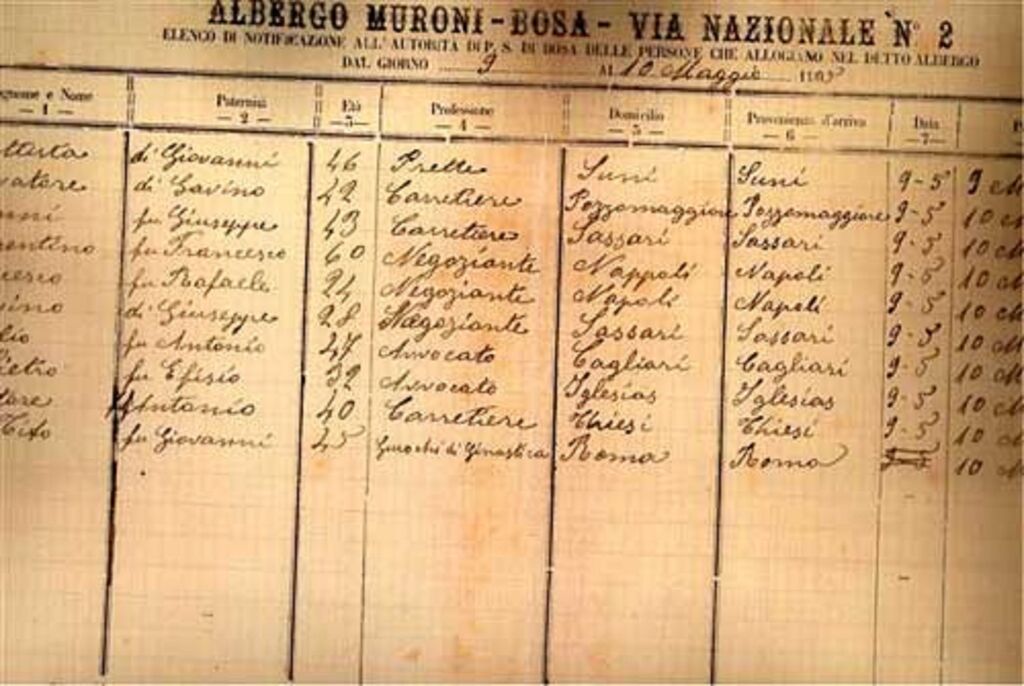 ALBERGO MURONI - BOSA - VIA NAZIONALE N° 2
ELENCO DI NOTIFICAZIONE ALL'AUTORITÀ DI P. S. DI BOSA DELLE PERSONE CHE ALLOGIANO NEL DETTO ALBERGO
DAL GIORNO 9 AL 10 Maggio
e Nome Paternità Età Professione Domicilio Provenienza d'arrivo Data
- 1 - - 2 - - 3 - - 4 - - 5 - - 6 - - 7 -
di Giovanni 46 Prette Suni Suni 9-5 9 M
di Gavino 42 Carretiere Pozzomaggiore Pozzomaggiore 9-5 10 M
fu Giuseppe 43 Carretiere Sassari Sassari 9-5 10 M
fu Francesco 60 Negoziante Nappoli Napoli 9-5 10 M
fu Rafaele 24 Negoziante Napoli Napoli 9-5 10 M
di Giuseppe 28 Negoziante Sassari Sassari 9-5 10 M
fu Antonio 47 Avvocato Cagliari Cagliari 9-5 10 M
fu Efisio 32 Avvocato Iglesias Iglesias 9-5 10 M
Antonio 40 Carretiere Thiesi Thiesi 9-5 10 M
fu Giovanni 45 di Ginastica Roma Roma 10 M